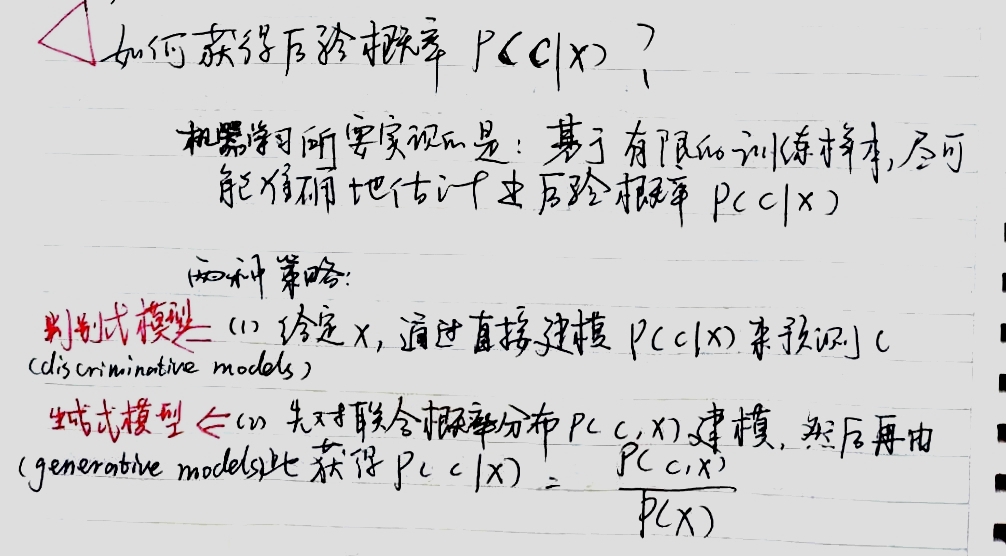 如何获得后验概率 P(C|X)?
机器学习所要实现的是:基于有限的训练样本,尽可
能准确地估计出后验概率 P(C|X)
两种策略:
判别式模型 ← (1) 给定X,通过直接建模 P(C|X) 来预测 C
(discriminative models)
生成式模型 ← (2) 先对联合概率分布 P(C,X) 建模,然后再由
(generative models) 此 获得 P(C|X) = P(C,X)
P(X)